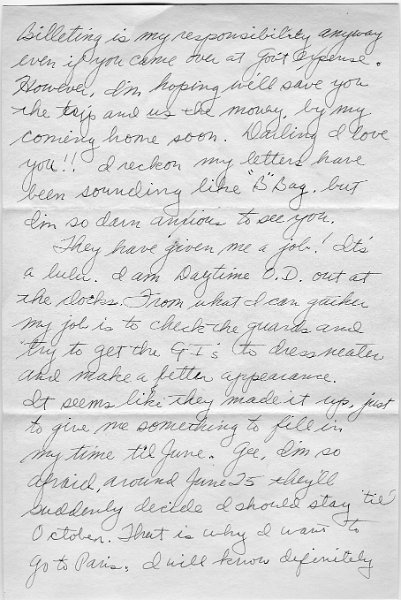 Billeting is my responsibility anyway
even if you came over at Govt Expense.
However, I'm hoping will save you
the trip and us the money, by my
coming home soon. Darling I love
you!! I reckon my letters have
been sounding like "B" Bag. but
I'm so darn anxious to see you.
They have given me a job! It's
a lulu. I am Daytime O.D. out at
the docks. From what I can gather
my job is to check the guards and
try to get the G I's to dress neater
and make a better appearance.
It seems like they made it up, just
to give me something to fill in
my time til June. Gee, I'm so
afraid, around June 25 they'll
suddenly decide I should stay 'til'
October. That is why I want to
go to Paris. I will know definitely